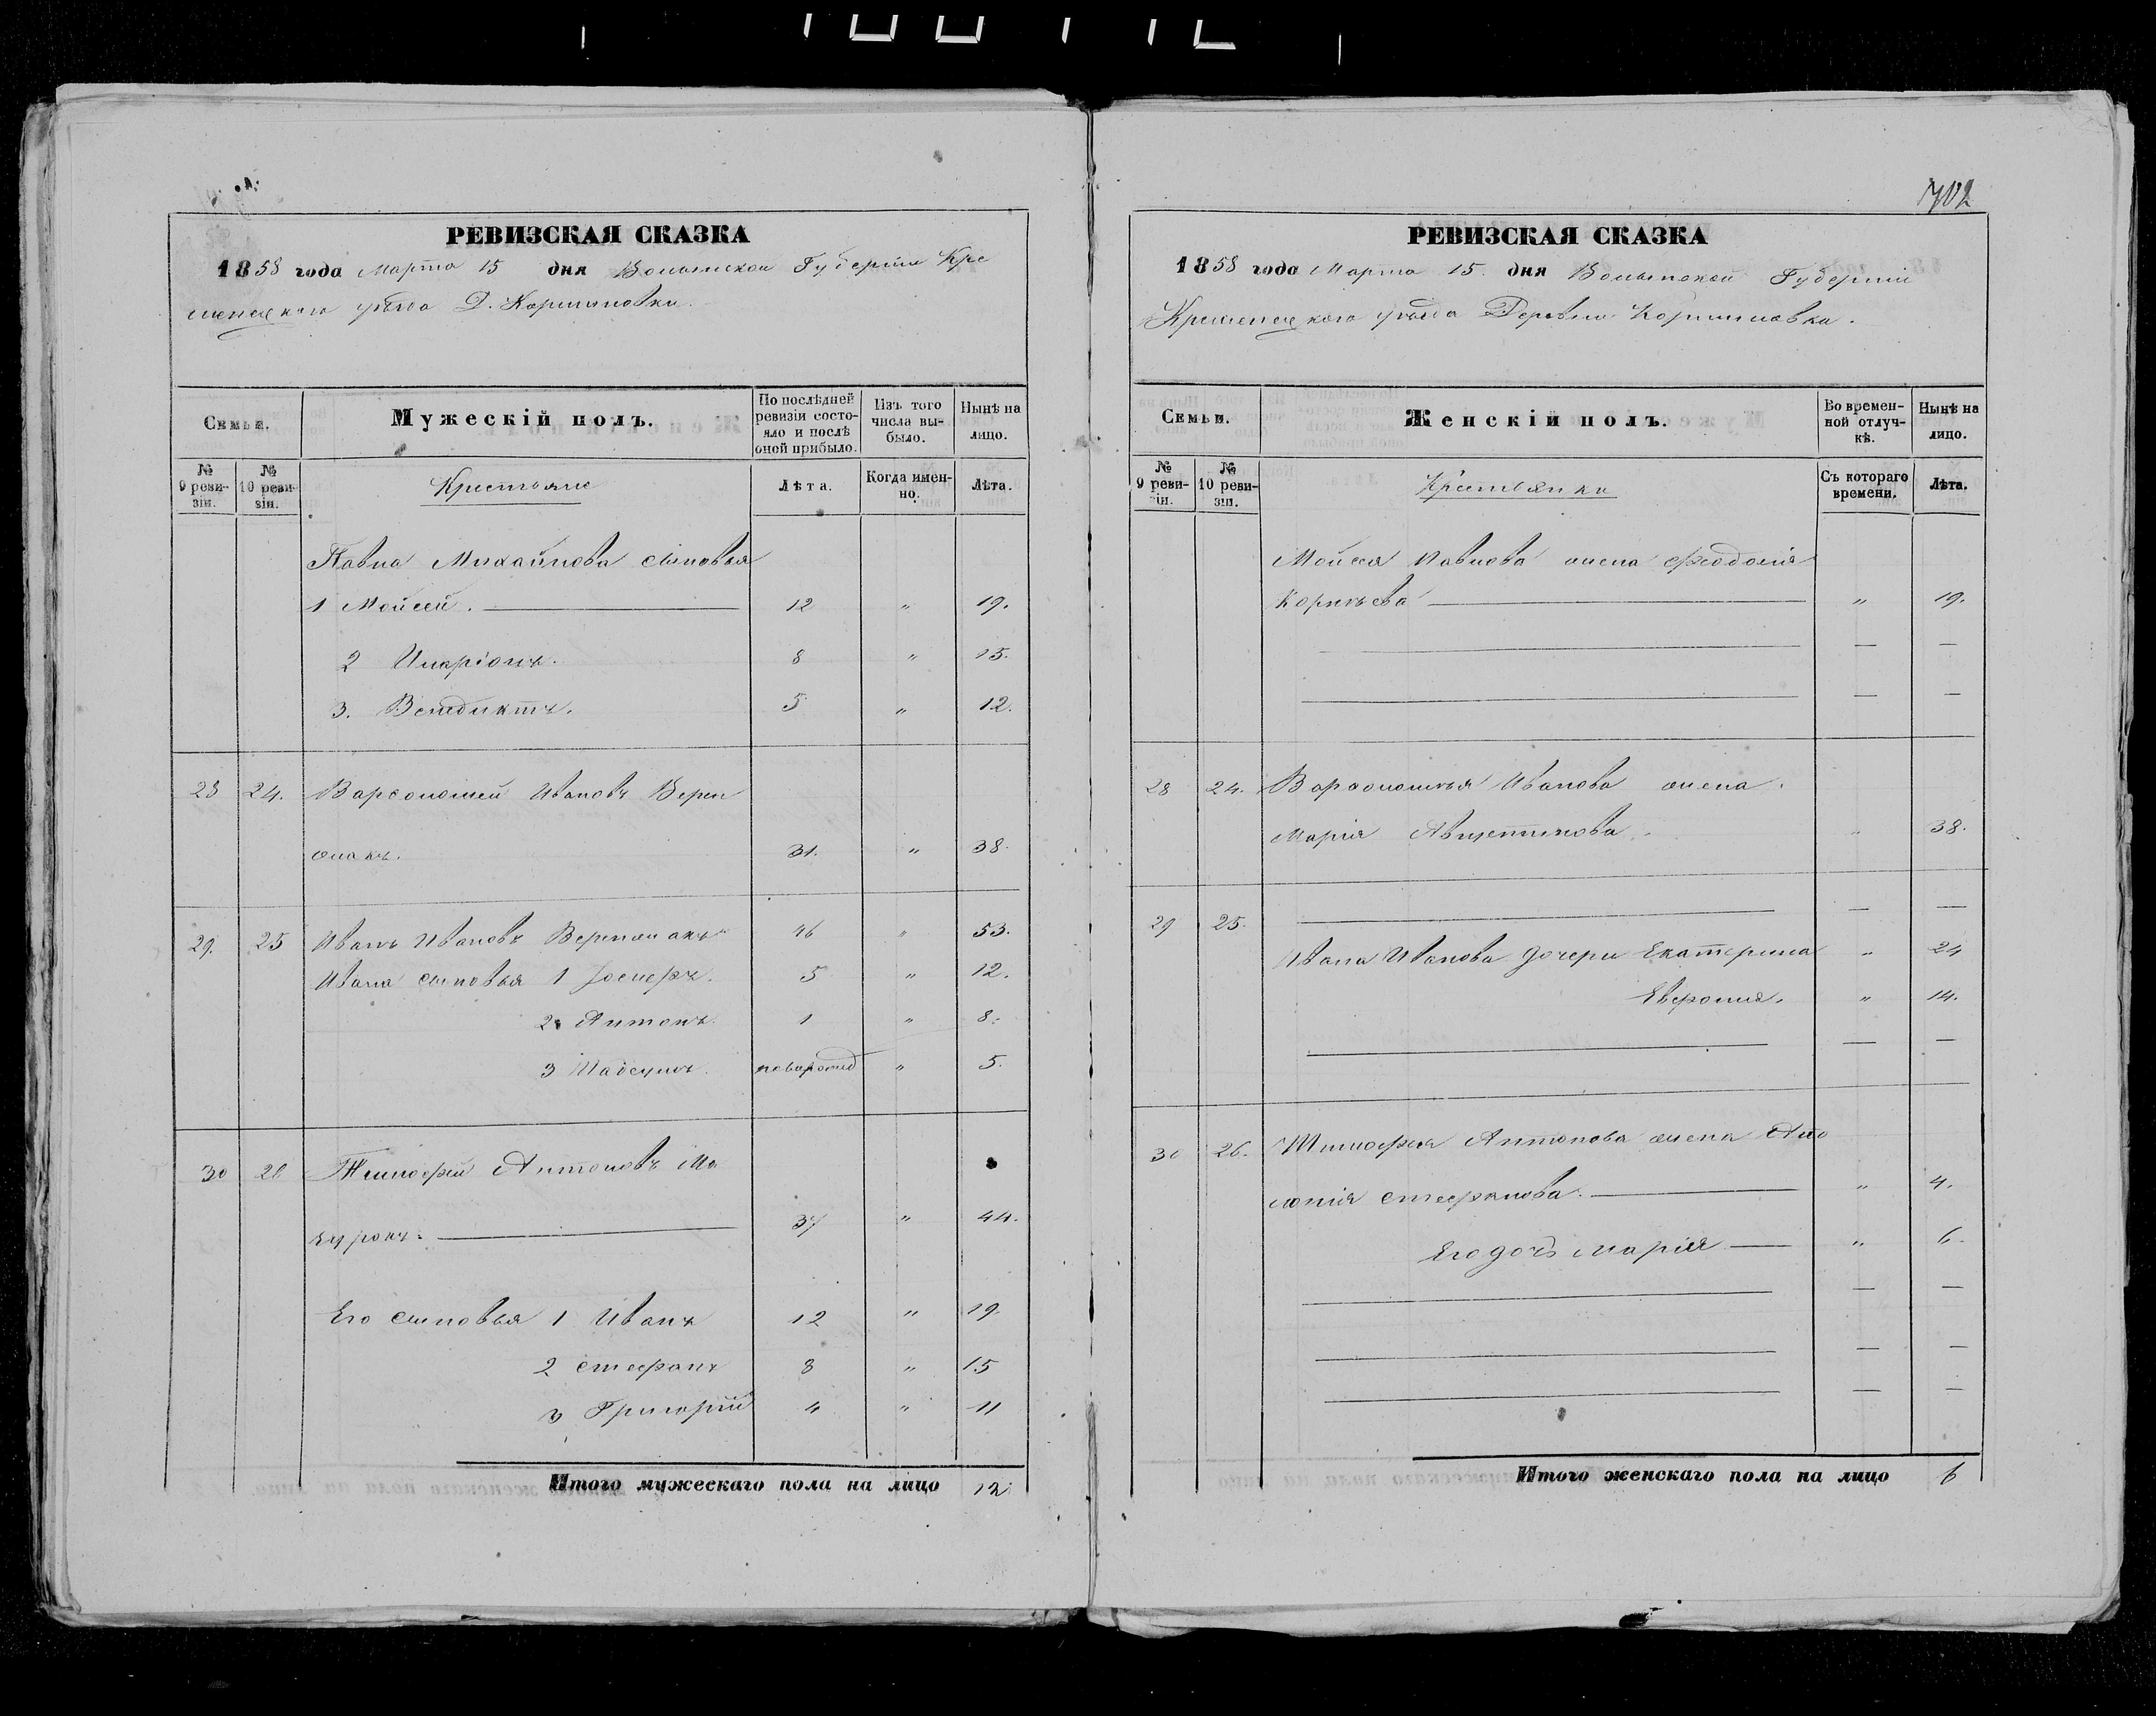 702
РЕВИЗСКАЯ СКАЗКА
1858 года Марта 15 дня Волынской Губерніи Кре
менецкаго уѣзда Д. Коршиловки.
Семьи.
Мужескій полъ.
По послѣдней ревизіи состо-
яло и послѣ оной прибыло.
Изъ того числа вы-
было.
Нынѣ на лицо.
№ 9 реви-
зіи.
№ 10 реви-
зіи.
Крестьяне
Лѣта.
Когда имен-
но.
Лѣта.
Павла Михайлова сыновья
1 Мойсей. 12 " 19.
2 Иларіонъ. 8 " 15.
3. Венедиктъ. 5 " 12.
28 24. Варсономей Ивановъ
31. " 38.
29. 25 Иванъ Ивановъ 46 " 53.
Ивана сыновья 1 Іосифъ. 5 " 12.
2 Антонъ 1 " 8.
3 новорожд " 5.
30 26 Тимофей Антоновъ Ма
37 " 44.
Его сыновья 1 Иванъ 12 " 19.
2 Стефанъ 8 " 15
3 Григорій 4 " 11
Итого мужескаго пола на лицо 12
РЕВИЗСКАЯ СКАЗКА
1858 года Марта 15. дня Волынской Губерніи
Кременецкаго уѣзда Деревни Коршиловка.
Семьи.
Женскій полъ.
Во времен-
ной отлуч-
кѣ.
Нынѣ на лицо.
№ 9 реви-
зіи.
№ 10 реви-
зіи.
Крестьянки
Съ котораго времени.
Лѣта.
Мойсея Павлова жена Феодосія
Корнѣева " 19.
— —
— —
28 24. Ивана Иванова жена.
Марія " 38.
29 25. — —
Ивана Иванова дочери Екатерина " 24
" 14.
— —
30 26. Тимофея Антонова жена Апо
лонія Стефанова. " 4.
Его дочь Марія " 6.
— —
— —
— —
Итого женскаго пола на лицо 6